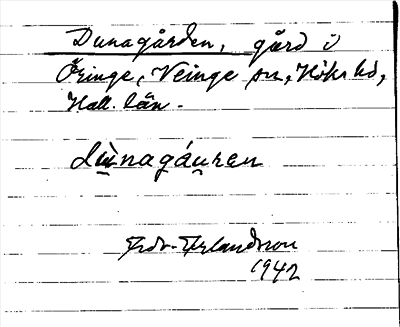 Dunagården, gård i
Öringe, Veinge sn, Höks hd,
Hall. län.
dùnagáuren
Frdr. Erlandsson
1942